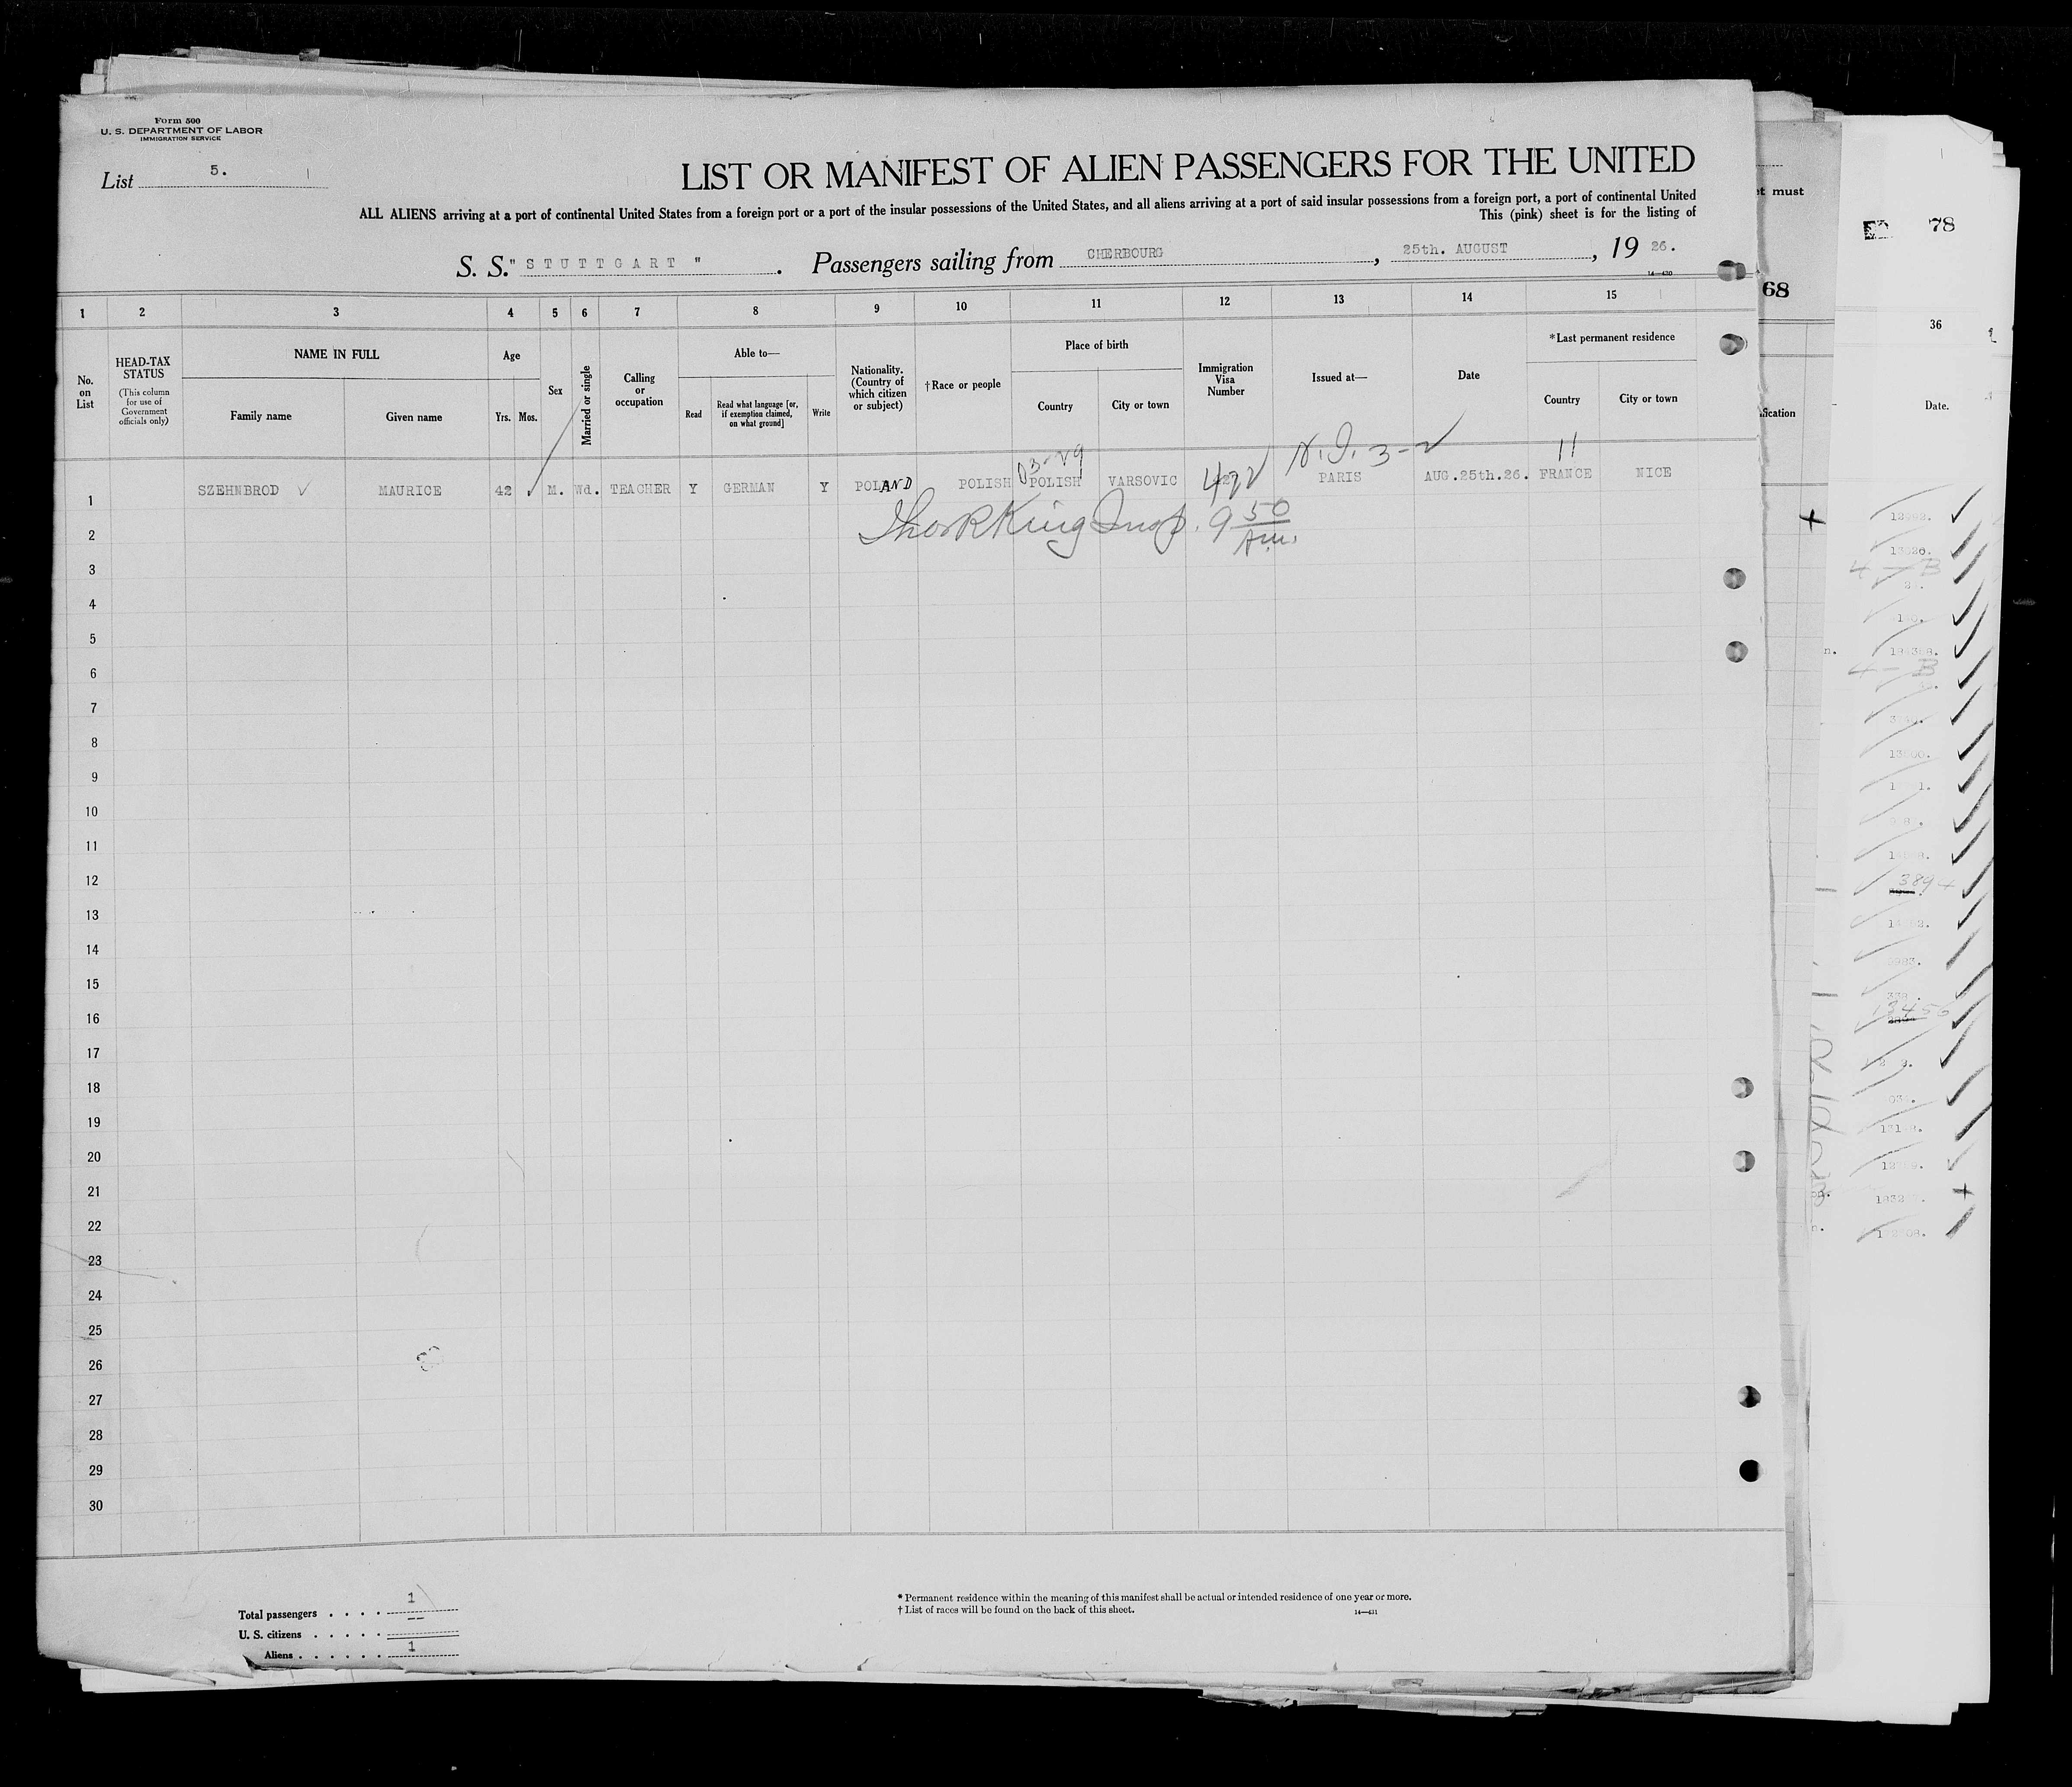 Form 500
U. S. DEPARTMENT OF LABOR
IMMIGRATION SERVICE
List 5.
LIST OR MANIFEST OF ALIEN PASSENGERS FOR THE UNITED
ALL ALIENS arriving at a port of continental United States from a foreign port or a port of the insular possessions of the United States, and all aliens arriving at a port of said insular possessions from a foreign port, a port of continental United
This (pink) sheet is for the listing of
S. S. "STUTTGART". Passengers sailing from CHERBOURG, 25th. AUGUST, 19 26.
14—430
1 2 3 4 5 6 7 8 9 10 11 12 13 14 15
No. on List
HEAD-TAX STATUS
(This column for use of Government officials only)
NAME IN FULL
Family name Given name
Age
Yrs. Mos.
Sex
Married or single
Calling or occupation
Able to—
Read
Read what language [or, if exemption claimed, on what ground]
Write
Nationality. (Country of which citizen or subject)
†Race or people
Place of birth
Country City or town
Immigration Visa Number
Issued at—
Date
*Last permanent residence
Country City or town
N.I. 3-2
11
1 SZEHNBROD MAURICE 42 M. Wd. TEACHER Y GERMAN Y POLAND POLISH POLISH VARSOVIC PARIS AUG.25th.26. FRANCE NICE
King Insp. 9 50 Am.
2
3
4
5
6
7
8
9
10
11
12
13
14
15
16
17
18
19
20
21
22
23
24
25
26
27
28
29
30
Total passengers . . . . 1
U. S. citizens . . . . . --
Aliens . . . . . . 1
* Permanent residence within the meaning of this manifest shall be actual or intended residence of one year or more.
† List of races will be found on the back of this sheet.
14—431
must
68
78
36
Date.